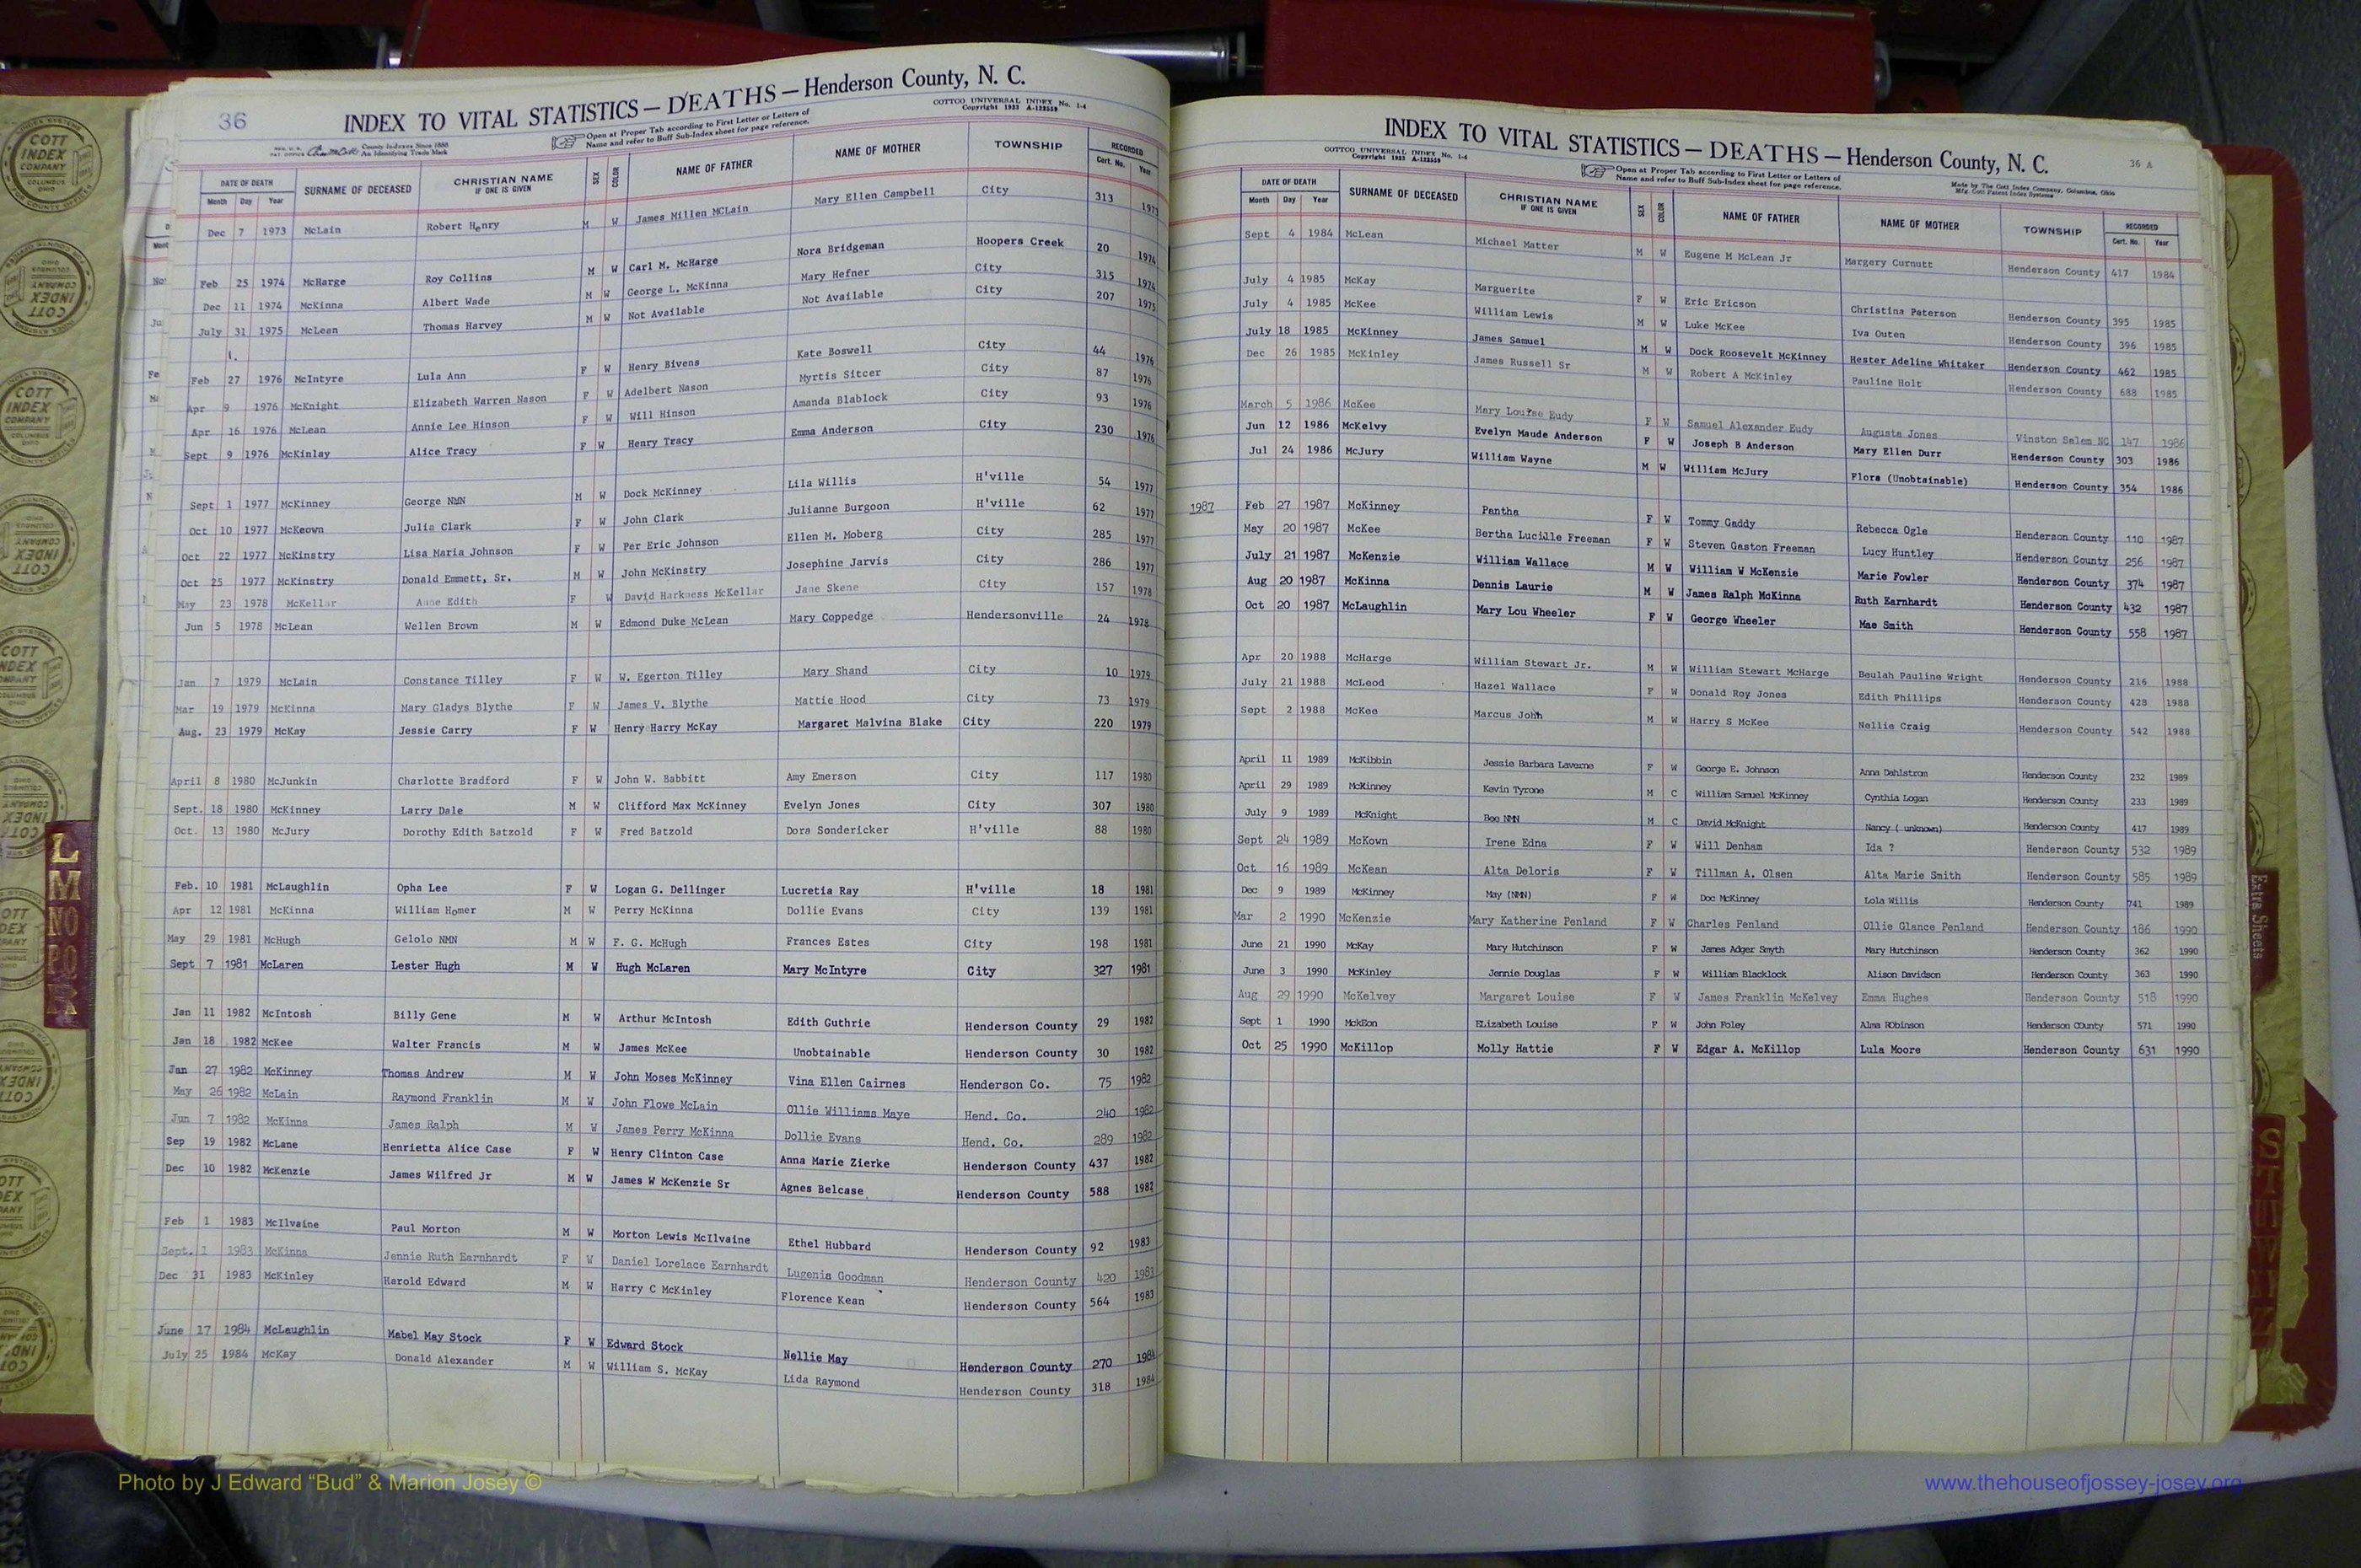 36
INDEX TO VITAL STATISTICS — DEATHS — Henderson County, N. C.
COTTCO UNIVERSAL INDEX No. 1-4
Copyright 1933 A-123559
County Indexes Since 1888
An Identifying Trade Mark
Open at Proper Tab according to First Letter or Letters of
Name and refer to Buff Sub-Index sheet for page reference.
DATE OF DEATH SURNAME OF DECEASED CHRISTIAN NAME IF ONE IS GIVEN SEX COLOR NAME OF FATHER NAME OF MOTHER TOWNSHIP RECORDED
Month Day Year Cert. No. Year
Dec 7 1973 McLain Robert Henry M W James Millen MCLain Mary Ellen Campbell City 313 1973
Feb 25 1974 McHarge Roy Collins M W Carl M. McHarge Nora Bridgeman Hoopers Creek 20 1974
Dec 11 1974 McKinna Albert Wade M W George L. McKinna Mary Hefner City 315 1974
July 31 1975 McLean Thomas Harvey M W Not Available Not Available City 207 1975
Feb 27 1976 McIntyre Lula Ann F W Henry Bivens Kate Boswell City 44 1976
Apr 9 1976 McKnight Elizabeth Warren Nason F W Adelbert Nason Myrtis Sitcer City 87 1976
Apr 16 1976 McLean Annie Lee Hinson F W Will Hinson Amanda Blablock City 93 1976
Sept 9 1976 McKinlay Alice Tracy F W Henry Tracy Emma Anderson City 230 1976
Sept 1 1977 McKinney George NMN M W Dock McKinney Lila Willis H'ville 54 1977
Oct 10 1977 McKeown Julia Clark F W John Clark Julianne Burgoon H'ville 62 1977
Oct 22 1977 McKinstry Lisa Maria Johnson F W Per Eric Johnson Ellen M. Moberg City 285 1977
Oct 25 1977 McKinstry Donald Emmett, Sr. M W John McKinstry Josephine Jarvis City 286 1977
May 23 1978 McKellar Anne Edith F W David Harkness McKellar Jane Skene City 157 1978
Jun 5 1978 McLean Wellen Brown M W Edmond Duke McLean Mary Coppedge Hendersonville 24 1978
Jan 7 1979 McLain Constance Tilley F W W. Egerton Tilley Mary Shand City 10 1979
Mar 19 1979 McKinna Mary Gladys Blythe F W James V. Blythe Mattie Hood City 73 1979
Aug. 23 1979 McKay Jessie Carry F W Henry Harry McKay Margaret Malvina Blake City 220 1979
April 8 1980 McJunkin Charlotte Bradford F W John W. Babbitt Amy Emerson City 117 1980
Sept. 18 1980 McKinney Larry Dale M W Clifford Max McKinney Evelyn Jones City 307 1980
Oct. 13 1980 McJury Dorothy Edith Batzold F W Fred Batzold Dora Sondericker H'ville 88 1980
Feb. 10 1981 McLaughlin Opha Lee F W Logan G. Dellinger Lucretia Ray H'ville 18 1981
Apr 12 1981 McKinna William Homer M W Perry McKinna Dollie Evans City 139 1981
May 29 1981 McHugh Gelolo NMN M W F. G. McHugh Frances Estes City 198 1981
Sept 7 1981 McLaren Lester Hugh M W Hugh McLaren Mary McIntyre City 327 1981
Jan 11 1982 McIntosh Billy Gene M W Arthur McIntosh Edith Guthrie Henderson County 29 1982
Jan 18 1982 McKee Walter Francis M W James McKee Unobtainable Henderson County 30 1982
Jan 27 1982 McKinney Thomas Andrew M W John Moses McKinney Vina Ellen Cairnes Henderson Co. 75 1982
May 26 1982 McLain Raymond Franklin M W John Flowe McLain Ollie Williams Maye Hend. Co. 240 1982
Jun 7 1982 McKinna James Ralph M W James Perry McKinna Dollie Evans Hend. Co. 289 1982
Sep 19 1982 McLane Henrietta Alice Case F W Henry Clinton Case Anna Marie Zierke Henderson County 437 1982
Dec 10 1982 McKenzie James Wilfred Jr M W James W McKenzie Sr Agnes Belcase Henderson County 588 1982
Feb 1 1983 McIlvaine Paul Morton M W Morton Lewis McIlvaine Ethel Hubbard Henderson County 92 1983
Sept. 1 1983 McKinna Jennie Ruth Earnhardt F W Daniel Lorelace Earnhardt Lugenia Goodman Henderson County 420 1983
Dec 31 1983 McKinley Harold Edward M W Harry C McKinley Florence Kean Henderson County 564 1983
June 17 1984 McLaughlin Mabel May Stock F W Edward Stock Nellie May Henderson County 270 1984
July 25 1984 McKay Donald Alexander M W William S. McKay Lida Raymond Henderson County 318 1984
INDEX TO VITAL STATISTICS — DEATHS — Henderson County, N. C.
36 A
COTTCO UNIVERSAL INDEX No. 1-4
Copyright 1933 A-123559
Open at Proper Tab according to First Letter or Letters of
Name and refer to Buff Sub-Index sheet for page reference.
Made by The Cott Index Company, Columbus, Ohio
Mfg. Cott Patent Index Systems
DATE OF DEATH SURNAME OF DECEASED CHRISTIAN NAME IF ONE IS GIVEN SEX COLOR NAME OF FATHER NAME OF MOTHER TOWNSHIP RECORDED
Month Day Year Cert. No. Year
Sept 4 1984 McLean Michael Matter M W Eugene M McLean Jr Margery Curnutt Henderson County 417 1984
July 4 1985 McKay Marguerite F W Eric Ericson Christina Peterson Henderson County 395 1985
July 4 1985 McKee William Lewis M W Luke McKee Iva Outen Henderson County 396 1985
July 18 1985 McKinney James Samuel M W Dock Roosevelt McKinney Hester Adeline Whitaker Henderson County 462 1985
Dec 26 1985 McKinley James Russell Sr M W Robert A McKinley Pauline Holt Henderson County 688 1985
March 5 1986 McKee Mary Louise Eudy F W Samuel Alexander Eudy Augusta Jones Winston Salem NC 147 1986
Jun 12 1986 McKelvy Evelyn Maude Anderson F W Joseph B Anderson Mary Ellen Durr Henderson County 303 1986
Jul 24 1986 McJury William Wayne M W William McJury Flora (Unobtainable) Henderson County 354 1986
1987 Feb 27 1987 McKinney Pantha F W Tommy Gaddy Rebecca Ogle Henderson County 110 1987
May 20 1987 McKee Bertha Lucille Freeman F W Steven Gaston Freeman Lucy Huntley Henderson County 256 1987
July 21 1987 McKenzie William Wallace M W William W McKenzie Marie Fowler Henderson County 374 1987
Aug 20 1987 McKinna Dennis Laurie M W James Ralph McKinna Ruth Earnhardt Henderson County 432 1987
Oct 20 1987 McLaughlin Mary Lou Wheeler F W George Wheeler Mae Smith Henderson County 558 1987
Apr 20 1988 McHarge William Stewart Jr. M W William Stewart McHarge Beulah Pauline Wright Henderson County 216 1988
July 21 1988 McLeod Hazel Wallace F W Donald Roy Jones Edith Phillips Henderson County 428 1988
Sept 2 1988 McKee Marcus John M W Harry S McKee Nellie Craig Henderson County 542 1988
April 11 1989 McKibbin Jessie Barbara Laverne F W George E. Johnson Anna Dahlstrom Henderson County 232 1989
April 29 1989 McKinney Kevin Tyrone M C William Samuel McKinney Cynthia Logan Henderson County 233 1989
July 9 1989 McKnight Bee NMN M C David McKnight Nancy ( unknown) Henderson County 417 1989
Sept 24 1989 McKown Irene Edna F W Will Denham Ida ? Henderson County 532 1989
Oct 16 1989 McKean Alta Deloris F W Tillman A. Olsen Alta Marie Smith Henderson County 585 1989
Dec 9 1989 McKinney May (NMN) F W Doc McKinney Lola Willis Henderson County 741 1989
Mar 2 1990 McKenzie Mary Katherine Penland F W Charles Penland Ollie Glance Penland Henderson County 186 1990
June 21 1990 McKay Mary Hutchinson F W James Adger Smyth Mary Hutchinson Henderson County 362 1990
June 3 1990 McKinley Jennie Douglas F W William Blacklock Alison Davidson Henderson County 363 1990
Aug 29 1990 McKelvey Margaret Louise F W James Franklin McKelvey Emma Hughes Henderson County 518 1990
Sept 1 1990 McKEon ELizabeth Louise F W John Foley Alma RObinson Henderson COunty 571 1990
Oct 25 1990 McKillop Molly Hattie F W Edgar A. McKillop Lula Moore Henderson County 631 1990
L
M
NO
PQ
R
Extra Sheets
COTT
INDEX
COMPANY
COLUMBUS
OHIO
Photo by J Edward “Bud” & Marion Josey ©
www.thehouseofjossey-josey.org